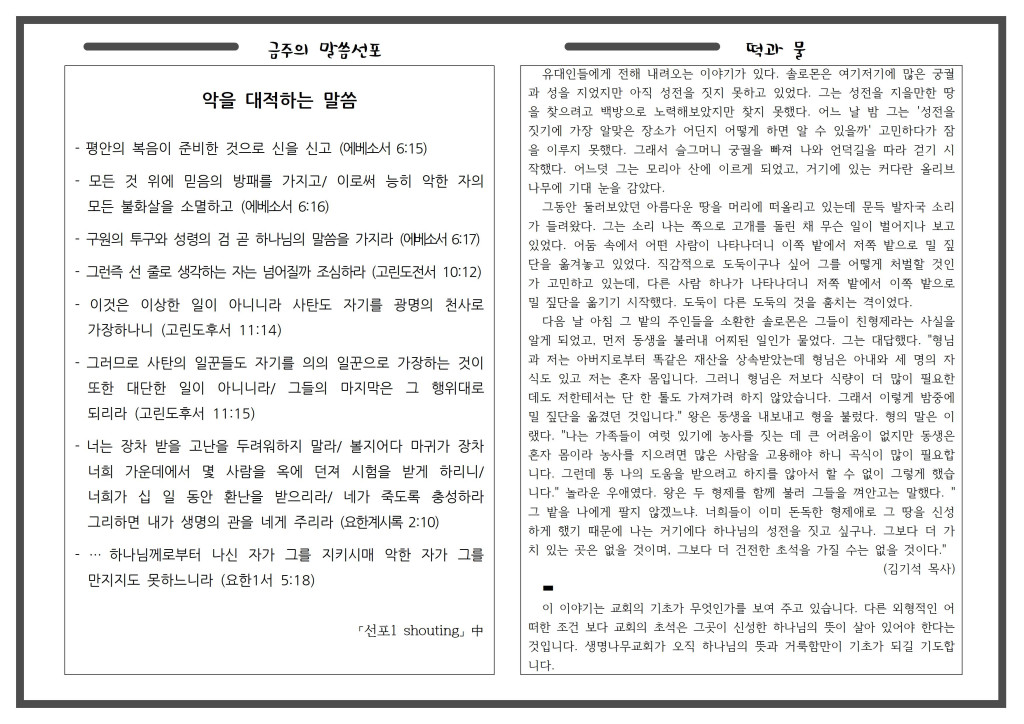 금주의 말씀선포
악을 대적하는 말씀
- 평안의 복음이 준비한 것으로 신을 신고 (에베소서 6:15)
- 모든 것 위에 믿음의 방패를 가지고/ 이로써 능히 악한 자의
모든 불화살을 소멸하고 (에베소서 6:16)
- 구원의 투구와 성령의 검 곧 하나님의 말씀을 가지라 (에베소서 6:17)
- 그런즉 선 줄로 생각하는 자는 넘어질까 조심하라 (고린도전서 10:12)
- 이것은 이상한 일이 아니니라 사탄도 자기를 광명의 천사로
가장하나니 (고린도후서 11:14)
- 그러므로 사탄의 일꾼들도 자기를 의의 일꾼으로 가장하는 것이
또한 대단한 일이 아니니라/ 그들의 마지막은 그 행위대로
되리라 (고린도후서 11:15)
- 너는 장차 받을 고난을 두려워하지 말라/ 볼지어다 마귀가 장차
너희 가운데에서 몇 사람을 옥에 던져 시험을 받게 하리니/
너희가 십 일 동안 환난을 받으리라/ 네가 죽도록 충성하라
그리하면 내가 생명의 관을 네게 주리라 (요한계시록 2:10)
- … 하나님께로부터 나신 자가 그를 지키시매 악한 자가 그를
만지지도 못하느니라 (요한1서 5:18)
「선포1 shouting」中
떡과 물
유대인들에게 전해 내려오는 이야기가 있다. 솔로몬은 여기저기에 많은 궁궐
과 성을 지었지만 아직 성전을 짓지 못하고 있었다. 그는 성전을 지을만한 땅
을 찾으려고 백방으로 노력해보았지만 찾지 못했다. 어느 날 밤 그는 '성전을
짓기에 가장 알맞은 장소가 어딘지 어떻게 하면 알 수 있을까' 고민하다가 잠
을 이루지 못했다. 그래서 슬그머니 궁궐을 빠져 나와 언덕길을 따라 걷기 시
작했다. 어느덧 그는 모리아 산에 이르게 되었고, 거기에 있는 커다란 올리브
나무에 기대 눈을 감았다.
그동안 둘러보았던 아름다운 땅을 머리에 떠올리고 있는데 문득 발자국 소리
가 들려왔다. 그는 소리 나는 쪽으로 고개를 돌린 채 무슨 일이 벌어지나 보고
있었다. 어둠 속에서 어떤 사람이 나타나더니 이쪽 밭에서 저쪽 밭으로 밀 짚
단을 옮겨놓고 있었다. 직감적으로 도둑이구나 싶어 그를 어떻게 처벌할 것인
가 고민하고 있는데, 다른 사람 하나가 나타나더니 저쪽 밭에서 이쪽 밭으로
밀 짚단을 옮기기 시작했다. 도둑이 다른 도둑의 것을 훔치는 격이었다.
다음 날 아침 그 밭의 주인들을 소환한 솔로몬은 그들이 친형제라는 사실을
알게 되었고, 먼저 동생을 불러내 어찌된 일인가 물었다. 그는 대답했다. "형님
과 저는 아버지로부터 똑같은 재산을 상속받았는데 형님은 아내와 세 명의 자
식도 있고 저는 혼자 몸입니다. 그러니 형님은 저보다 식량이 더 많이 필요한
데도 저한테서는 단 한 톨도 가져가려 하지 않았습니다. 그래서 이렇게 밤중에
밀 짚단을 옮겼던 것입니다." 왕은 동생을 내보내고 형을 불렀다. 형의 말은 이
랬다. "나는 가족들이 여럿 있기에 농사를 짓는 데 큰 어려움이 없지만 동생은
혼자 몸이라 농사를 지으려면 많은 사람을 고용해야 하니 곡식이 많이 필요합
니다. 그런데 통 나의 도움을 받으려고 하지를 않아서 할 수 없이 그렇게 했습
니다." 놀라운 우애였다. 왕은 두 형제를 함께 불러 그들을 껴안고는 말했다. "
그 밭을 나에게 팔지 않겠느냐. 너희들이 이미 돈독한 형제애로 그 땅을 신성
하게 했기 때문에 나는 거기에다 하나님의 성전을 짓고 싶구나. 그보다 더 가
치 있는 곳은 없을 것이며, 그보다 더 건전한 초석을 가질 수는 없을 것이다."
(김기석 목사)
이 이야기는 교회의 기초가 무엇인가를 보여 주고 있습니다. 다른 외형적인 어
떠한 조건 보다 교회의 초석은 그곳이 신성한 하나님의 뜻이 살아 있어야 한다는
것입니다. 생명나무교회가 오직 하나님의 뜻과 거룩함만이 기초가 되길 기도합
니다.